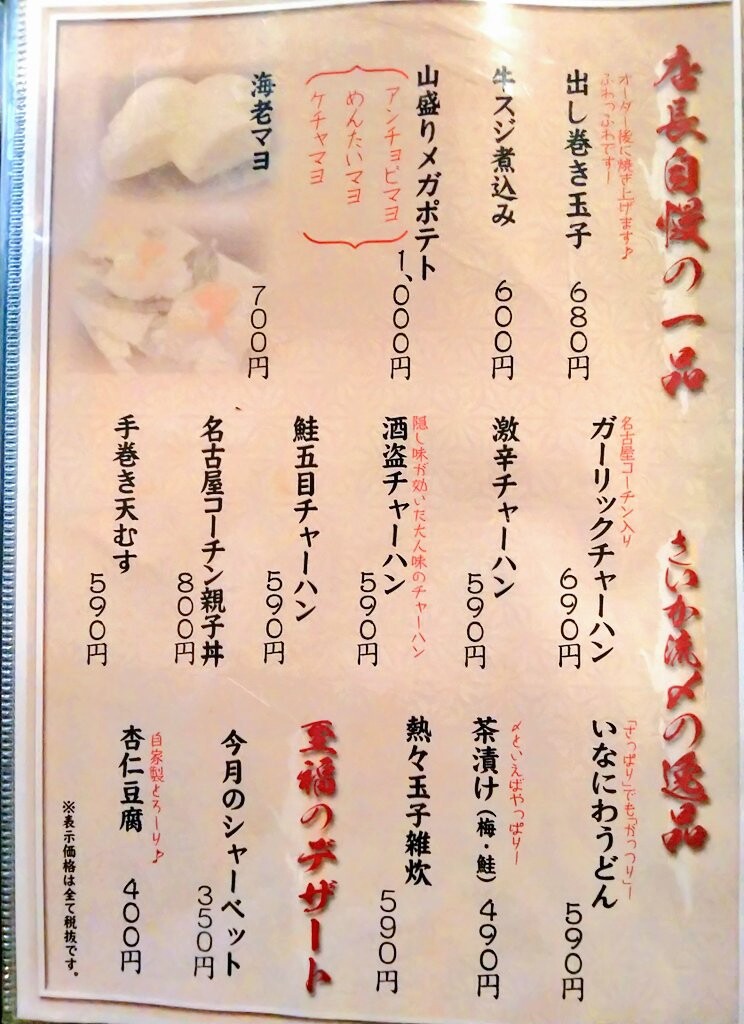 店長自慢の一品
オーダー後に焼き上げます♪
ふわっふわですー
出し巻き玉子 680円
牛スジ煮込み 600円
山盛りメガポテト 1,000円
アンチョビマヨ
めんたいマヨ
ケチャマヨ
海老マヨ 700円
さいか流〆の逸品
名古屋コーチン入り
ガーリックチャーハン 690円
激辛チャーハン 590円
隠し味が効いた大人味のチャーハン
酒盗チャーハン 590円
鮭五目チャーハン 590円
名古屋コーチン親子丼 800円
手巻き天むす 590円
「さっぱり」でも「がっつり」ー
いなにわうどん 590円
〆といえばやっぱりー
茶漬け(梅・鮭) 490円
熱々玉子雑炊 590円
至福のデザート
今月のシャーベット 350円
自家製とろーり♪
杏仁豆腐 400円
※表示価格は全て税抜です。